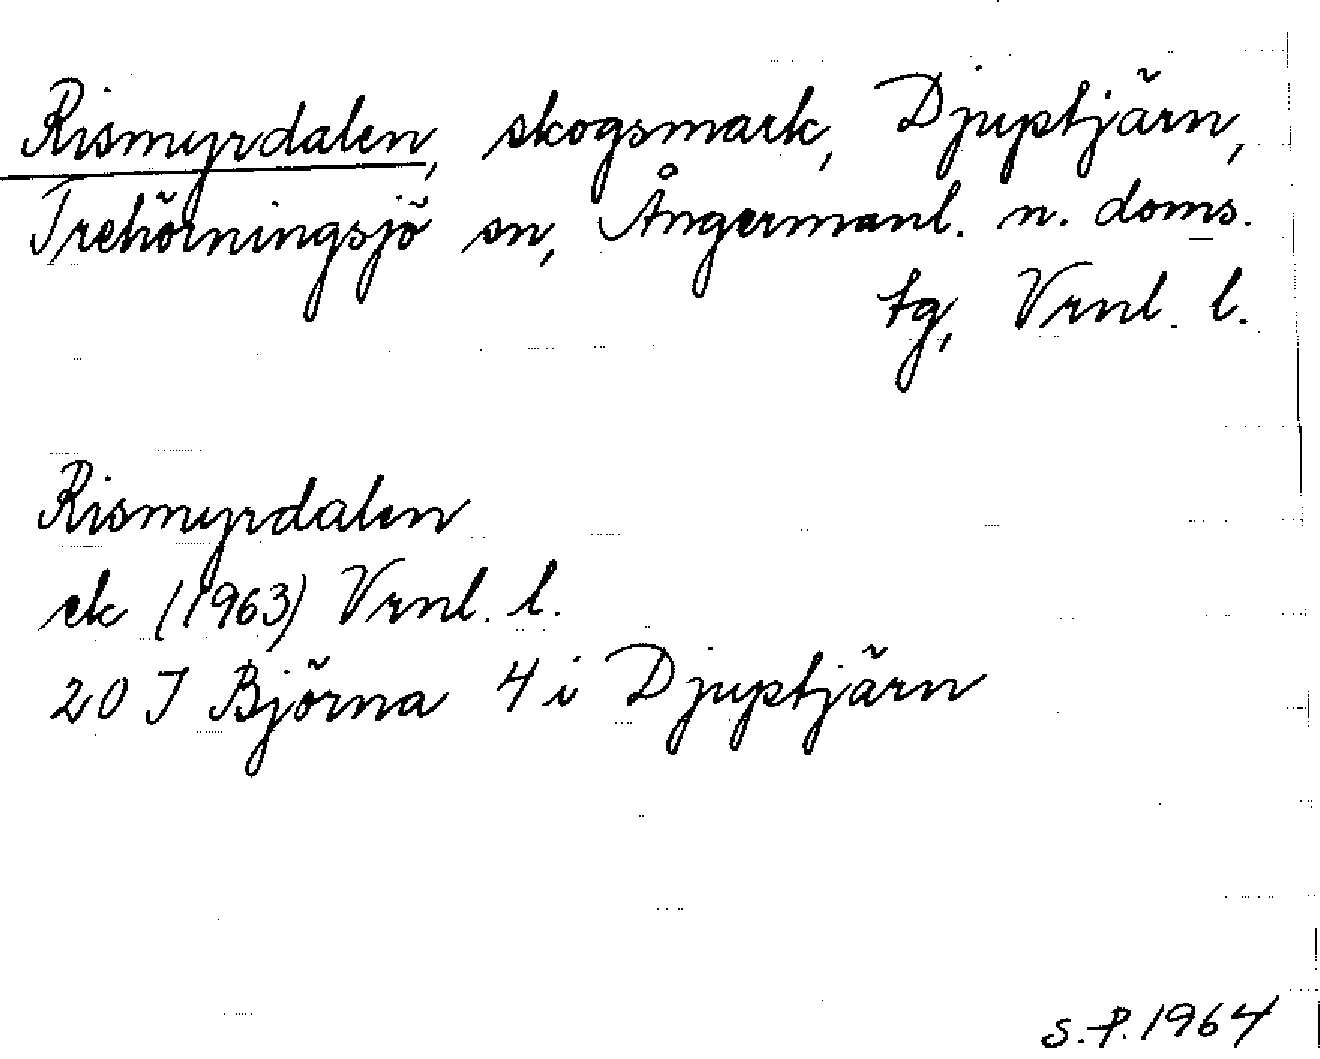 Rismyrdalen, skogsmark, Djuptjärn,
Trehörningsjö sn, Ångermanl. n. doms.
tg, Vrnl. l.
Rismyrdalen
ek (1963) Vrnl. l.
20 J Björna 4 i Djuptjärn
S.P. 1964